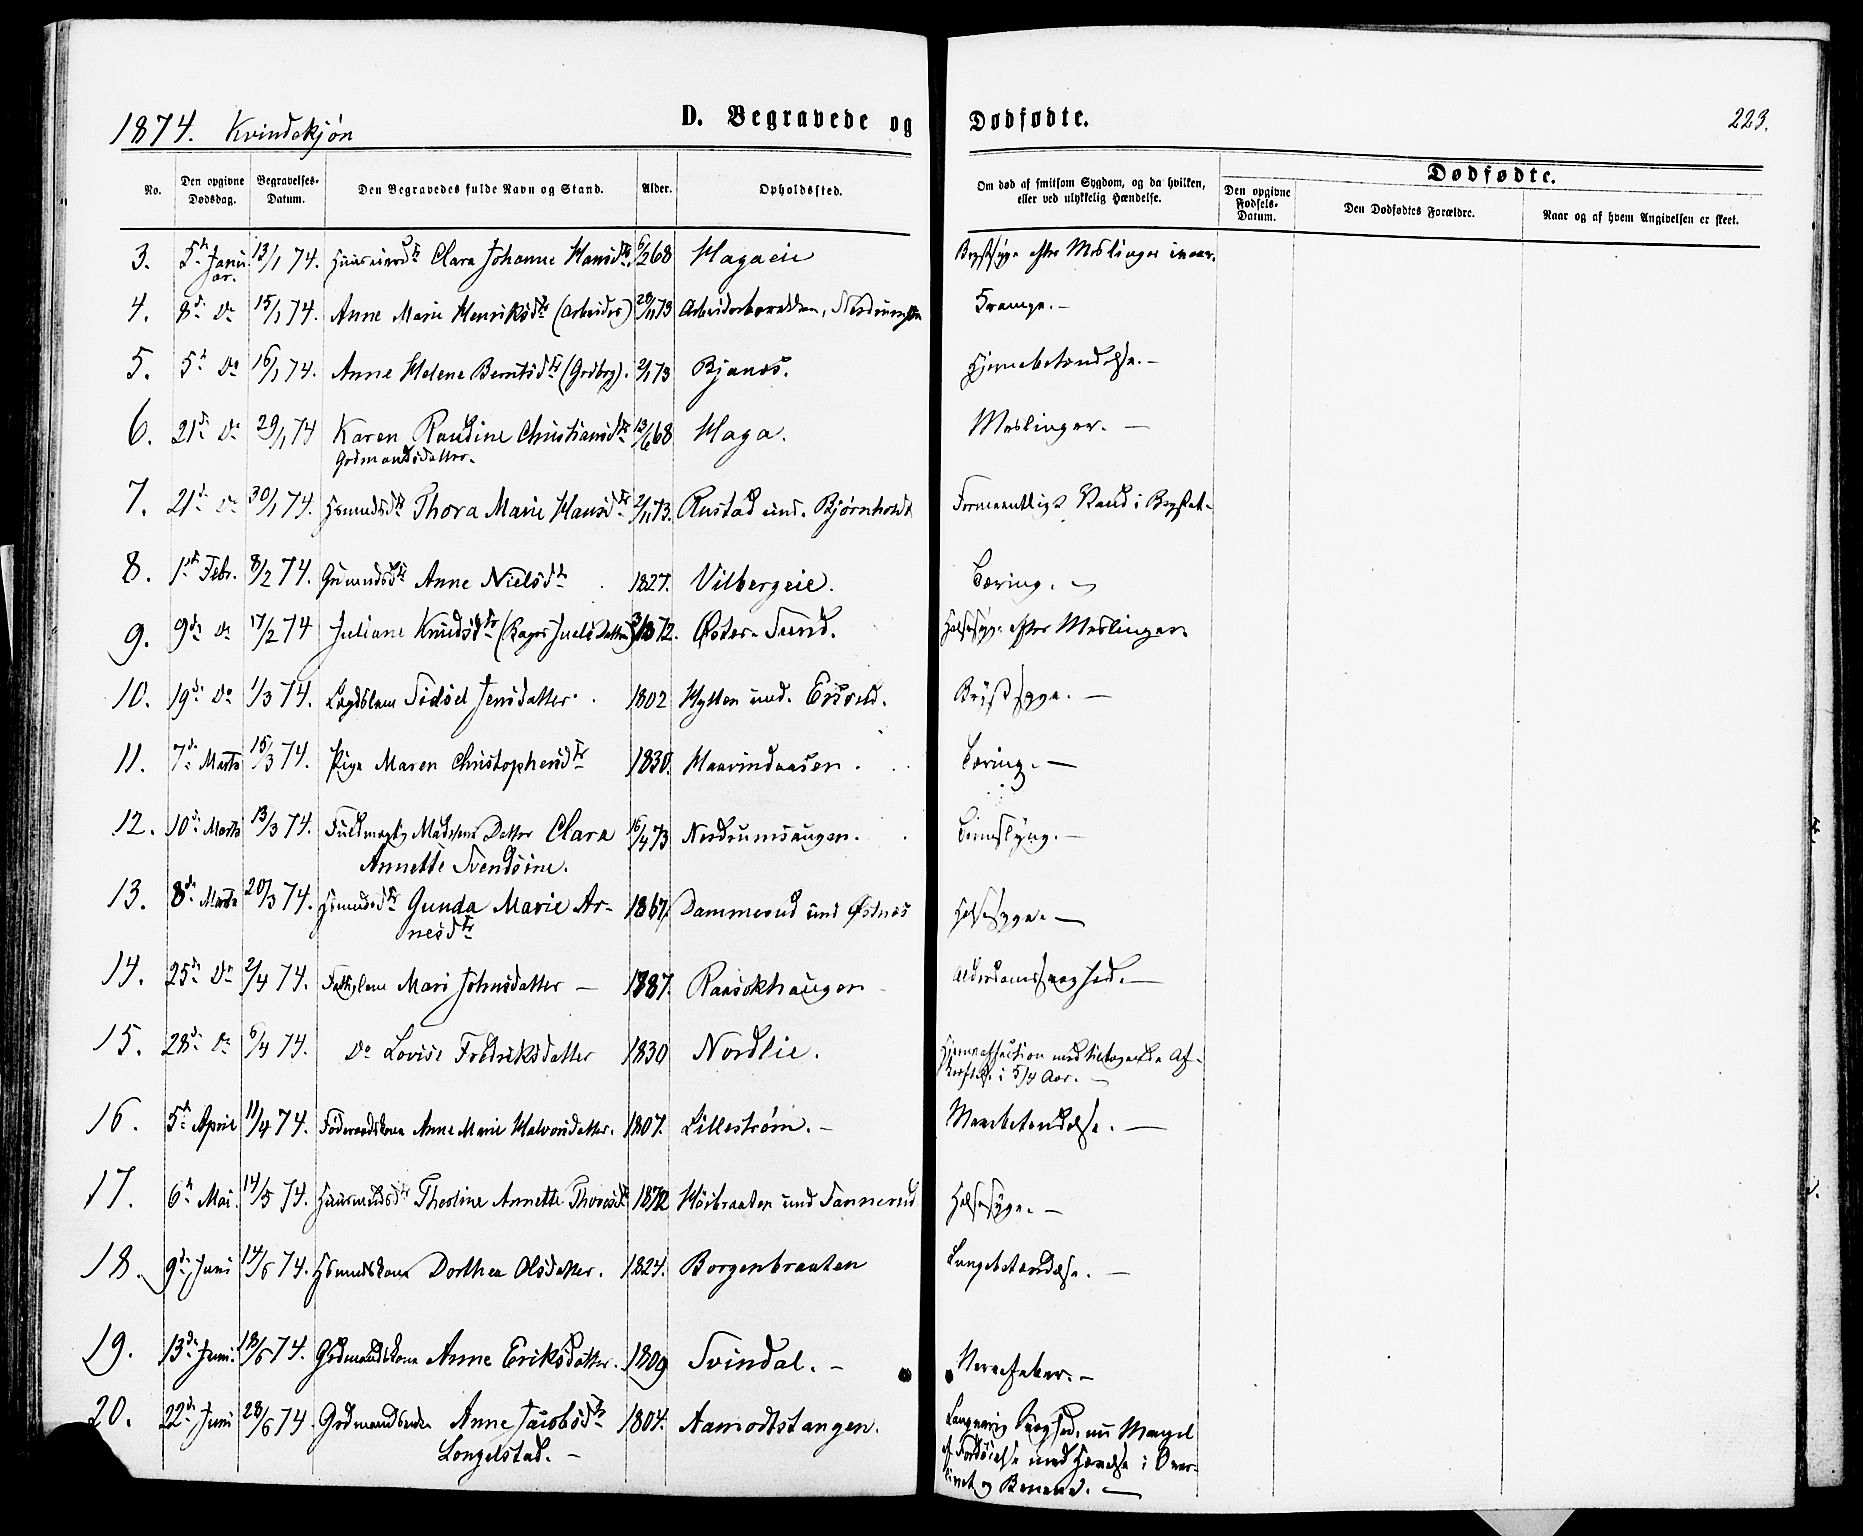 1874. Kvindekjøn
D. Begravede og Dødfødte.
223.
No.
Den opgivne Dødsdag.
Begravelses-Datum.
Den Begravedes fulde Navn og Stand.
Alder.
Opholdssted.
Om død af smitsom Sygdom, og da hvilken, eller ved ulykkelig Hændelse.
Dødfødte.
Den opgivne Fødsels-Datum.
Den Dødfødtes Forældre.
Naar og af hvem Angivelsen er skeet.
3. 5te Januar. 13/1 74. Clara Johanne Hansdtr. 6/2 68 Hagaeie Brystsyge efter Meslinger
4. 8de Do 15/1 74. Anne Marie Henriksdtr (Arbeider) 28/11 73 Krampe.—
5. 5te Do 16/1 74. Anne Helene Berntsdtr (Grdbrg). 2/1 73 Bjanes. Hjernebetændelse.—
6. 21de Do 29/1 74 Karen Randine Christiansdtr 13/6 68 Haga. Meslinger.—
Grdmandsdatter.
7. 21de Do 30/1 74. Hsmndsdtr Thora Marie Hansdtr 2/11 73. Rustad und. Bjørnholdt Formeentligt Vand i Brystet—
8. 1ste Febr. 8/2 74. Anne Nielsdtr 1827. Vilbergeie. Tæring.
9. 9de Do 17/2 74 Juliane Knudsdtr 1872. Øster Sund. Halssyge efter Meslinger
10. 19de Do 1/3 74. Lægdslem Sidsel Jensdatter. 1802 Hytten und. Brystsyge.—
11. 7de Marts 15/3 74. Pige Maren Christophersdtr 1830. Haavindaasen. Tæring.—
12. 10de Marts 13/3 74. Fuldmægtig Datter Clara 16/4 73 Nordrumshaugen.
Annette Svendsine.
13. 8de Marts 20/3 74. Hsmndsdtr Gunda Marie Ar- 1867. Dammerud und Østnes Halssyge.—
nesdtr
14. 25de Do 2/4 74. Fattiglem Mari Johnsdatter — 1787. Raasokhaugen Alderdomssvaghed.—
15. 28de Do 6/4 74. Do Lovise Fredriksdatter 1830 Nordlie. Hjerneaffection med tiltagende Af-
kræftelse i 5/4 Aar.—
16. 5te April 11/4 74. Føderaadskone Anne Marie Halvorsdatter. 1807. Lillestrøm.— Mavebetændelse.—
17. 6te Mai. 14/5 74. Huusmandsdtr Theoline Annette Thoresdtr 1872 Høibraaten und Tannerud Halssyge.—
18. 9de Juni 14/6 74. Hsmndskone Dorthea Olsdatter. 1824. Borgenbraaten Lungebetændelse.—
19. 13de Juni. 18/6 74. Grdmandskone Anne Eriksdatter. 1809 Svindal.— Nervefeber.—
20. 22de Juni 28/6 74 Grdmandsenke Anne Jacobsdtr 1804. Aamodtstangen. Langvarig Svaghed, nu Mangel
Longelstad.— af Fordøielse med Hævelse i Over-
livet og Benene.—